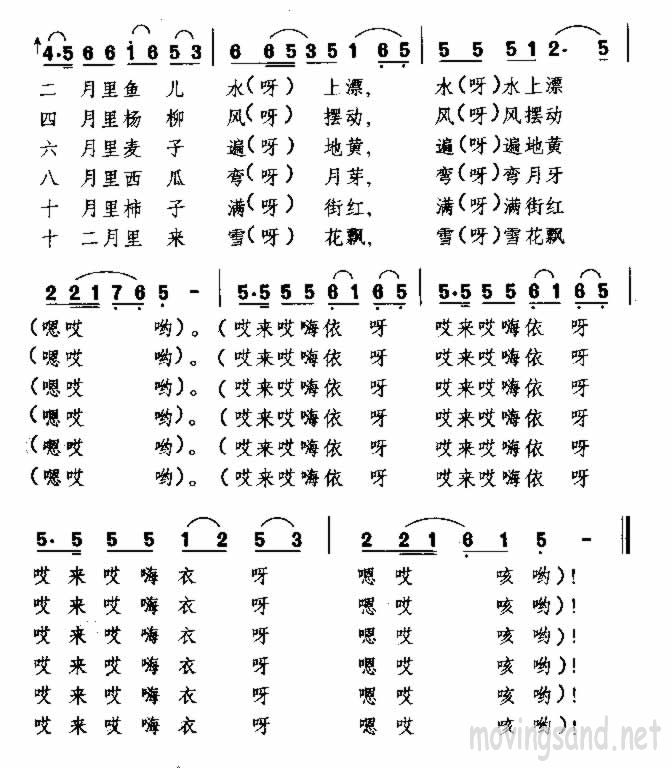 4·5 6 6 1 6 5 3 | 6 6 5 3 5 1 6 5 | 5 5 5 1 2· 5 |
二 月里鱼 儿 水(呀) 上漂, 水(呀)水上漂
四 月里杨 柳 风(呀) 摆动, 风(呀)风摆动
六 月里麦 子 遍(呀) 地黄, 遍(呀)遍地黄
八 月里西 瓜 弯(呀) 月芽, 弯(呀)弯月牙
十 月里柿 子 满(呀) 街红, 满(呀)满街红
十 二月里 来 雪(呀) 花飘, 雪(呀)雪花飘
2 2 1 7 6 5 - | 5·5 5 5 6 1 6 5 | 5·5 5 5 6 1 6 5 |
(嗯哎 哟)。(哎来哎嗨依 呀 哎来哎嗨依 呀
(嗯哎 哟)。(哎来哎嗨依 呀 哎来哎嗨依 呀
(嗯哎 哟)。(哎来哎嗨依 呀 哎来哎嗨依 呀
(嗯哎 哟)。(哎来哎嗨依 呀 哎来哎嗨依 呀
(嗯哎 哟)。(哎来哎嗨依 呀 哎来哎嗨依 呀
(嗯哎 哟)。(哎来哎嗨依 呀 哎来哎嗨依 呀
5· 5 5 5 1 2 5 3 | 2 2 1 6 1 5 - ‖
哎 来 哎 嗨 衣 呀 嗯 哎 咳 哟)!
哎 来 哎 嗨 衣 呀 嗯 哎 咳 哟)!
哎 来 哎 嗨 衣 呀 嗯 哎 咳 哟)!
哎 来 哎 嗨 衣 呀 嗯 哎 咳 哟)!
哎 来 哎 嗨 衣 呀 嗯 哎 咳 哟)!
哎 来 哎 嗨 衣 呀 嗯 哎 咳 哟)!
movingsand.net